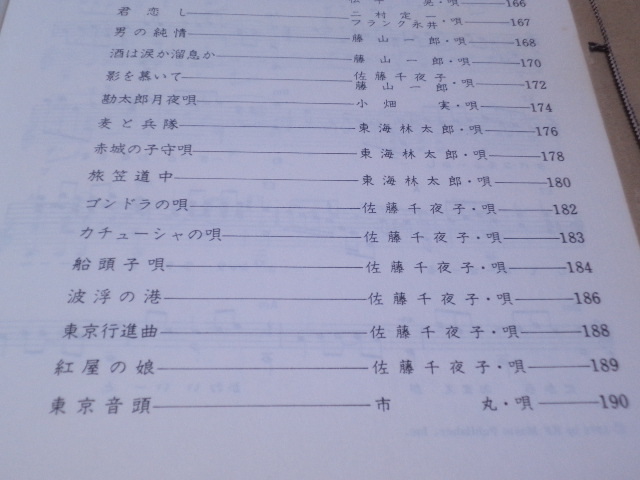 晃・唄 166
君恋し 二村定一 フランク永井・唄 167
男の純情 藤山一郎・唄 168
酒は涙か溜息か 藤山一郎・唄 170
影を慕いて 佐藤千夜子 藤山一郎・唄 172
勘太郎月夜唄 小畑実・唄 174
麦と兵隊 東海林太郎・唄 176
赤城の子守唄 東海林太郎・唄 178
旅笠道中 東海林太郎・唄 180
ゴンドラの唄 佐藤千夜子・唄 182
カチューシャの唄 佐藤千夜子・唄 183
船頭子唄 佐藤千夜子・唄 184
波浮の港 佐藤千夜子・唄 186
東京行進曲 佐藤千夜子・唄 188
紅屋の娘 佐藤千夜子・唄 189
東京音頭 市丸・唄 190